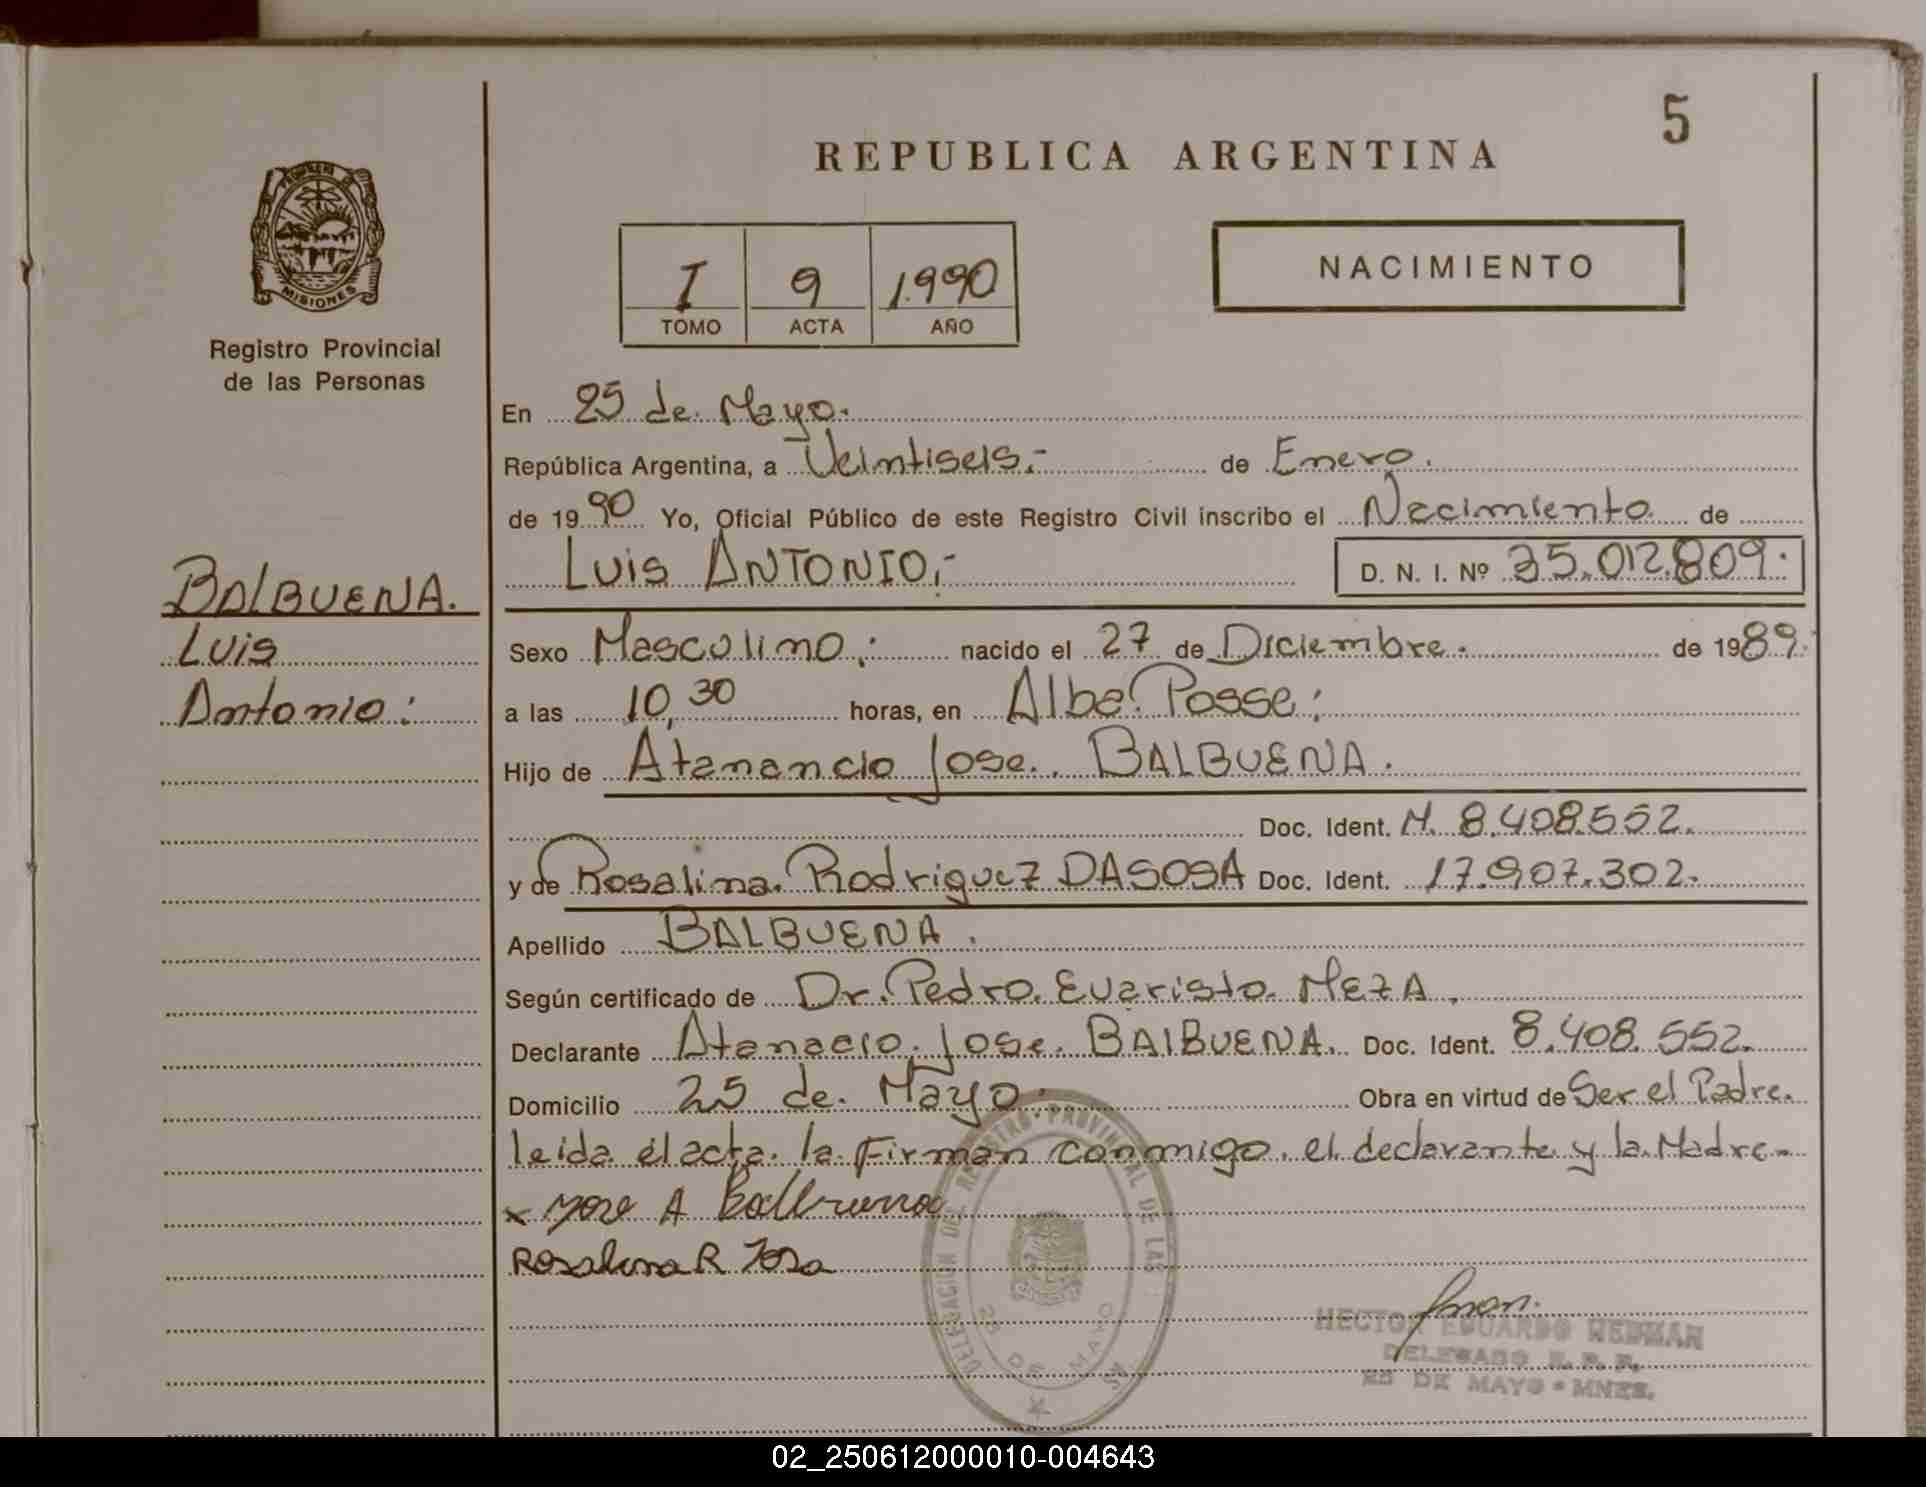 5
REPUBLICA ARGENTINA
PROVINCIA DE
MISIONES
Registro Provincial
de las Personas
I 9 1.990
TOMO ACTA AÑO
NACIMIENTO
En 25 de Mayo.
República Argentina, a Veintiseis.- de Enero.
de 19 90 Yo, Oficial Público de este Registro Civil inscribo el Nacimiento de
Luis ANTONIO,- D. N. I. Nº 35.012.809.
BALBUENA.
Luis
Antonio:
Sexo Masculino; nacido el 27 de Diciembre. de 1989.
a las 10,30 horas, en Alba Posse;
Hijo de Atanancio Jose. BALBUENA.
Doc. Ident. M. 8.408.552.
y de Rosalina. Rodriguez DASOSA Doc. Ident. 17.907.302.
Apellido BALBUENA.
Según certificado de Dr. Pedro. Evaristo. MEZA.
Declarante Atanacio. Jose. BALBUENA. Doc. Ident. 8.408.552.
Domicilio 25 de. Mayo. Obra en virtud de Ser el Padre.
leida el acta. la Firman conmigo. el declarante y la Madre.
x Jose A Balbuena
Rosalina R Sosa
DELEGACION DEL REGISTRO PROVINCIAL DE LAS
25 DE MAYO
HECTOR EDUARDO
DELEGADO R. P. P.
25 DE MAYO - MNES.
02_250612000010-004643